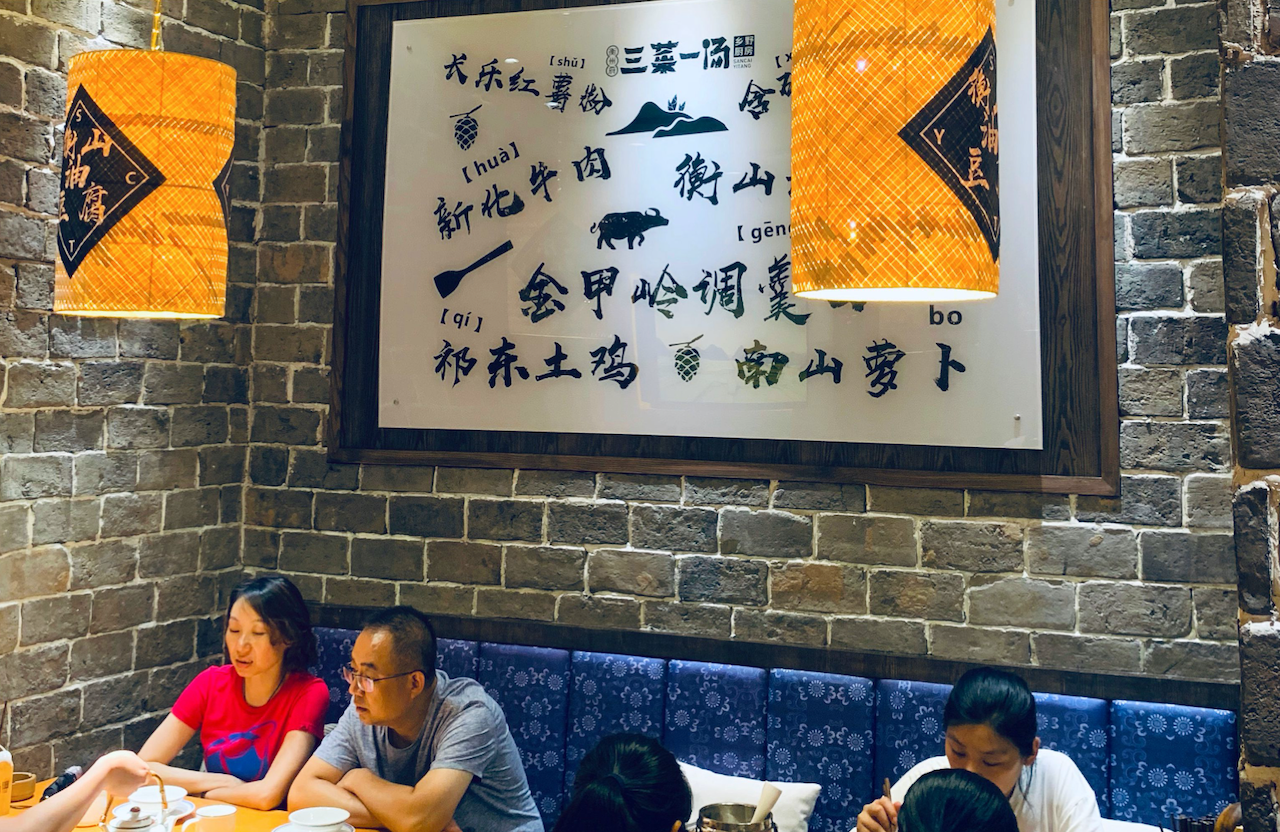 [shǔ]
长乐红薯粉
衡州府
三菜一汤
乡野厨房
SANCAI YITANG
[huà]
新化牛肉
衡山
[gēng
金甲岭调羹
bo
[qí]
祁东土鸡
南山萝卜
S
C
T
衡山
油豆腐
Y
衡
油
豆